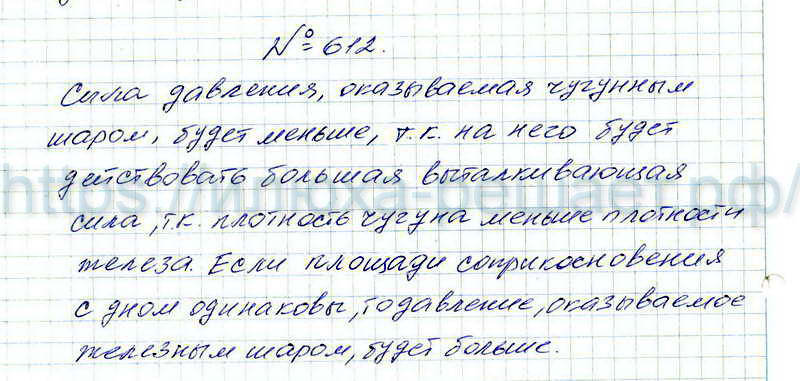 № 612.
Сила давления, оказываемая чугунным
шаром, будет меньше, т.к. на него будет
действовать большая выталкивающая
сила, т.к. плотность чугуна меньше плотности
железа. Если площади соприкосновения
с дном одинаковы, то давление, оказываемое
железным шаром, будет больше.